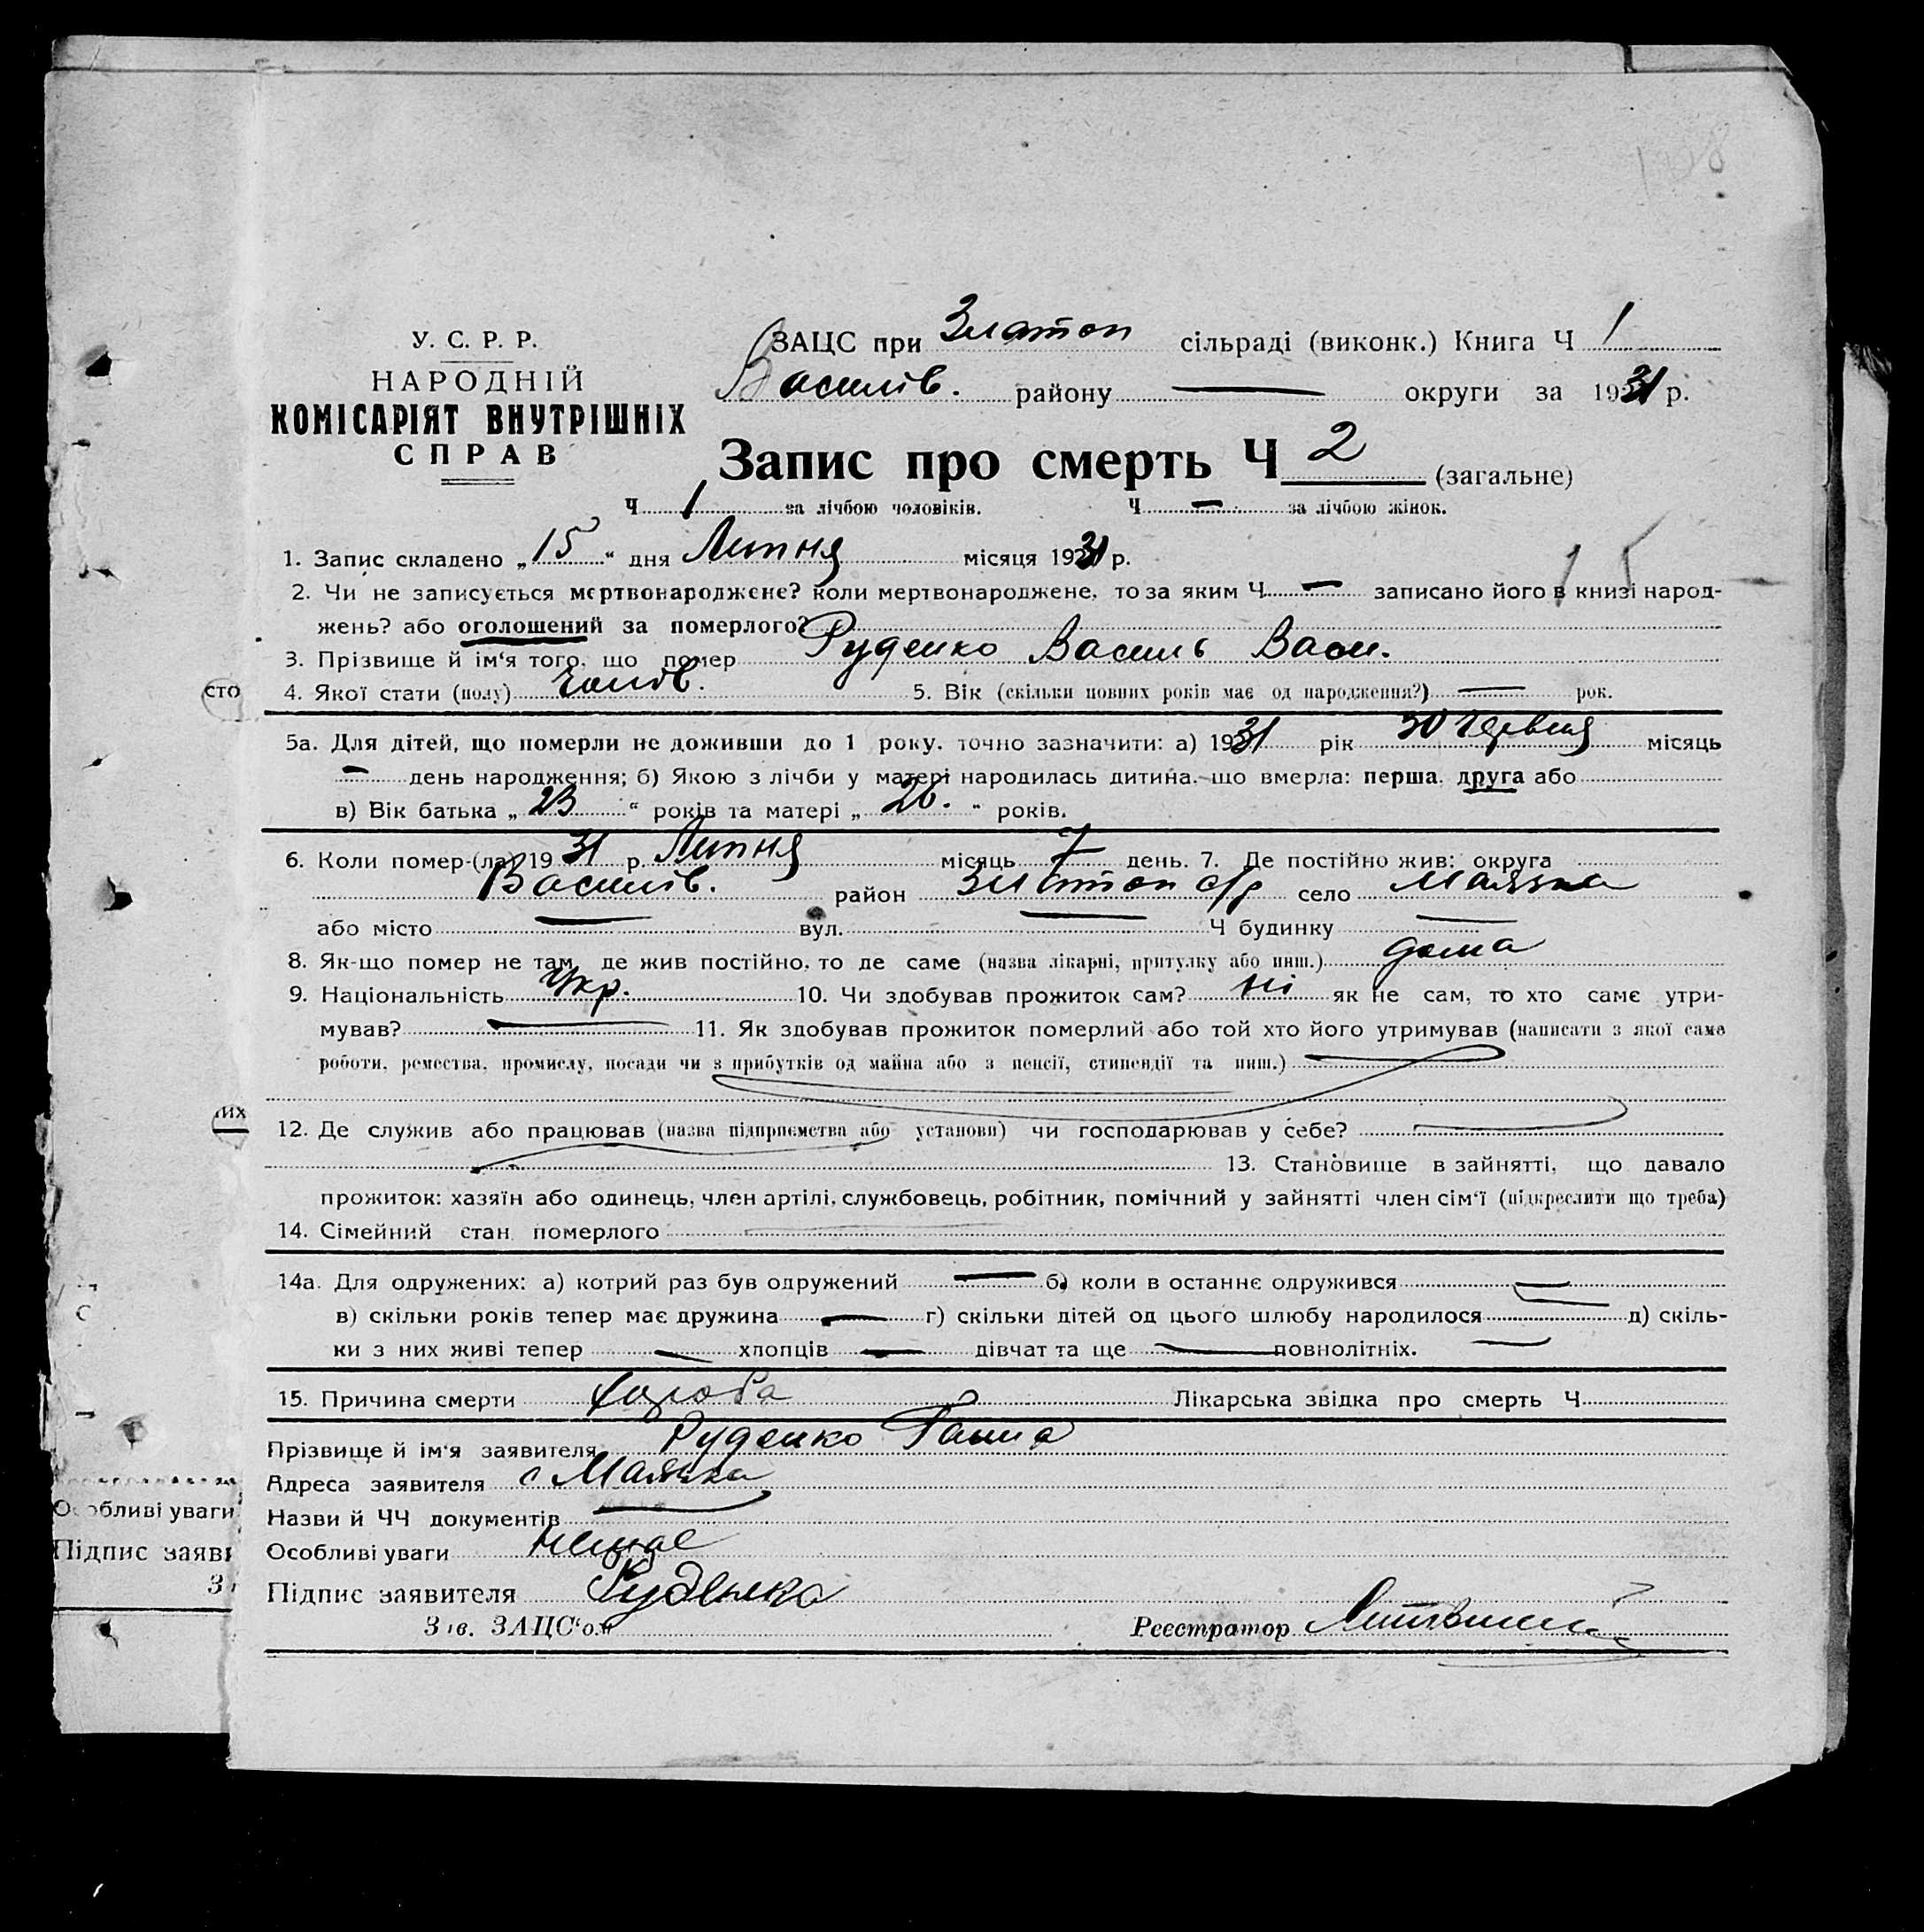 У. С. Р. Р.
НАРОДНІЙ
КОМІСАРІЯТ ВНУТРІШНІХ
СПРАВ
ЗАЦС при Златоп сільраді (виконк.) Книга Ч 1
Василів. району — округи за 1931 р.
Запис про смерть Ч 2 (загальне)
Ч 1 за лічбою чоловіків. Ч — за лічбою жінок.
1. Запис складено „15“ дня Липня місяця 1931 р.
2. Чи не записується мертвонароджене? коли мертвонароджене, то за яким Ч — записано його в книзі народ-
жень? або оголошений за померлого?
3. Прізвище й ім'я того, що помер Руденко Василь Васи.
4. Якої стати (полу) Чолов. 5. Вік (скільки повних років має од народження?) — рок.
5а. Для дітей, що померли не доживши до 1 року. точно зазначити: а) 1931 рік 30 Червня місяць
— день народження; б) Якою з лічби у матері народилась дитина, що вмерла: перша, друга або
в) Вік батька „23“ років та матері „26.“ років.
6. Коли помер-(ла) 1931 р. Липня місяць 7 день. 7. Де постійно жив: округа
Василів. район Златоп с/р село Маячка
або місто — вул. — Ч будинку —
8. Як-що помер не там, де жив постійно, то де саме (назва лікарні, притулку або инш.) дома
9. Національність Укр. 10. Чи здобував прожиток сам? ні як не сам, то хто саме утри-
мував? — 11. Як здобував прожиток померлий або той хто його утримував (написати з якої саме
роботи, ремества, промислу, посади чи з прибутків од майна або з пенсії, стипендії та инш.) —
12. Де служив або працював (назва підприємства або установи) чи господарював у себе? —
13. Становище в зайнятті, що давало
прожиток: хазяїн або одинець, член артілі, службовець, робітник, помічний у зайнятті член сім'ї (підкреслити що треба)
14. Сімейний стан померлого —
14а. Для одружених: а) котрий раз був одружений — б) коли в останнє одружився —
в) скільки років тепер має дружина — г) скільки дітей од цього шлюбу народилося — д) скіль-
ки з них живі тепер — хлопців — дівчат та ще — повнолітніх. —
15. Причина смерти хороба Лікарська звідка про смерть Ч
Прізвище й ім'я заявителя Руденко Ганна
Адреса заявителя с Маячка
Назви й ЧЧ документів —
Особливі уваги немає
Підпис заявителя Руденко
Зав. ЗАЦС'ом Реєстратор
сто
них
Особливі уваги
Підпис заяв